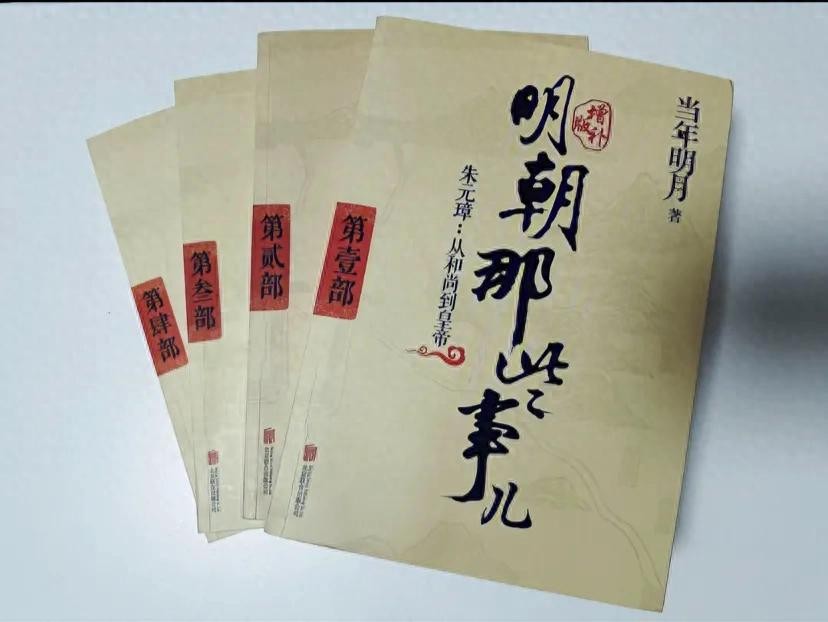 当年明月 著
明朝那些事儿
增补版
朱元璋：从和尚到皇帝
第壹部
第贰部
第叁部
第肆部